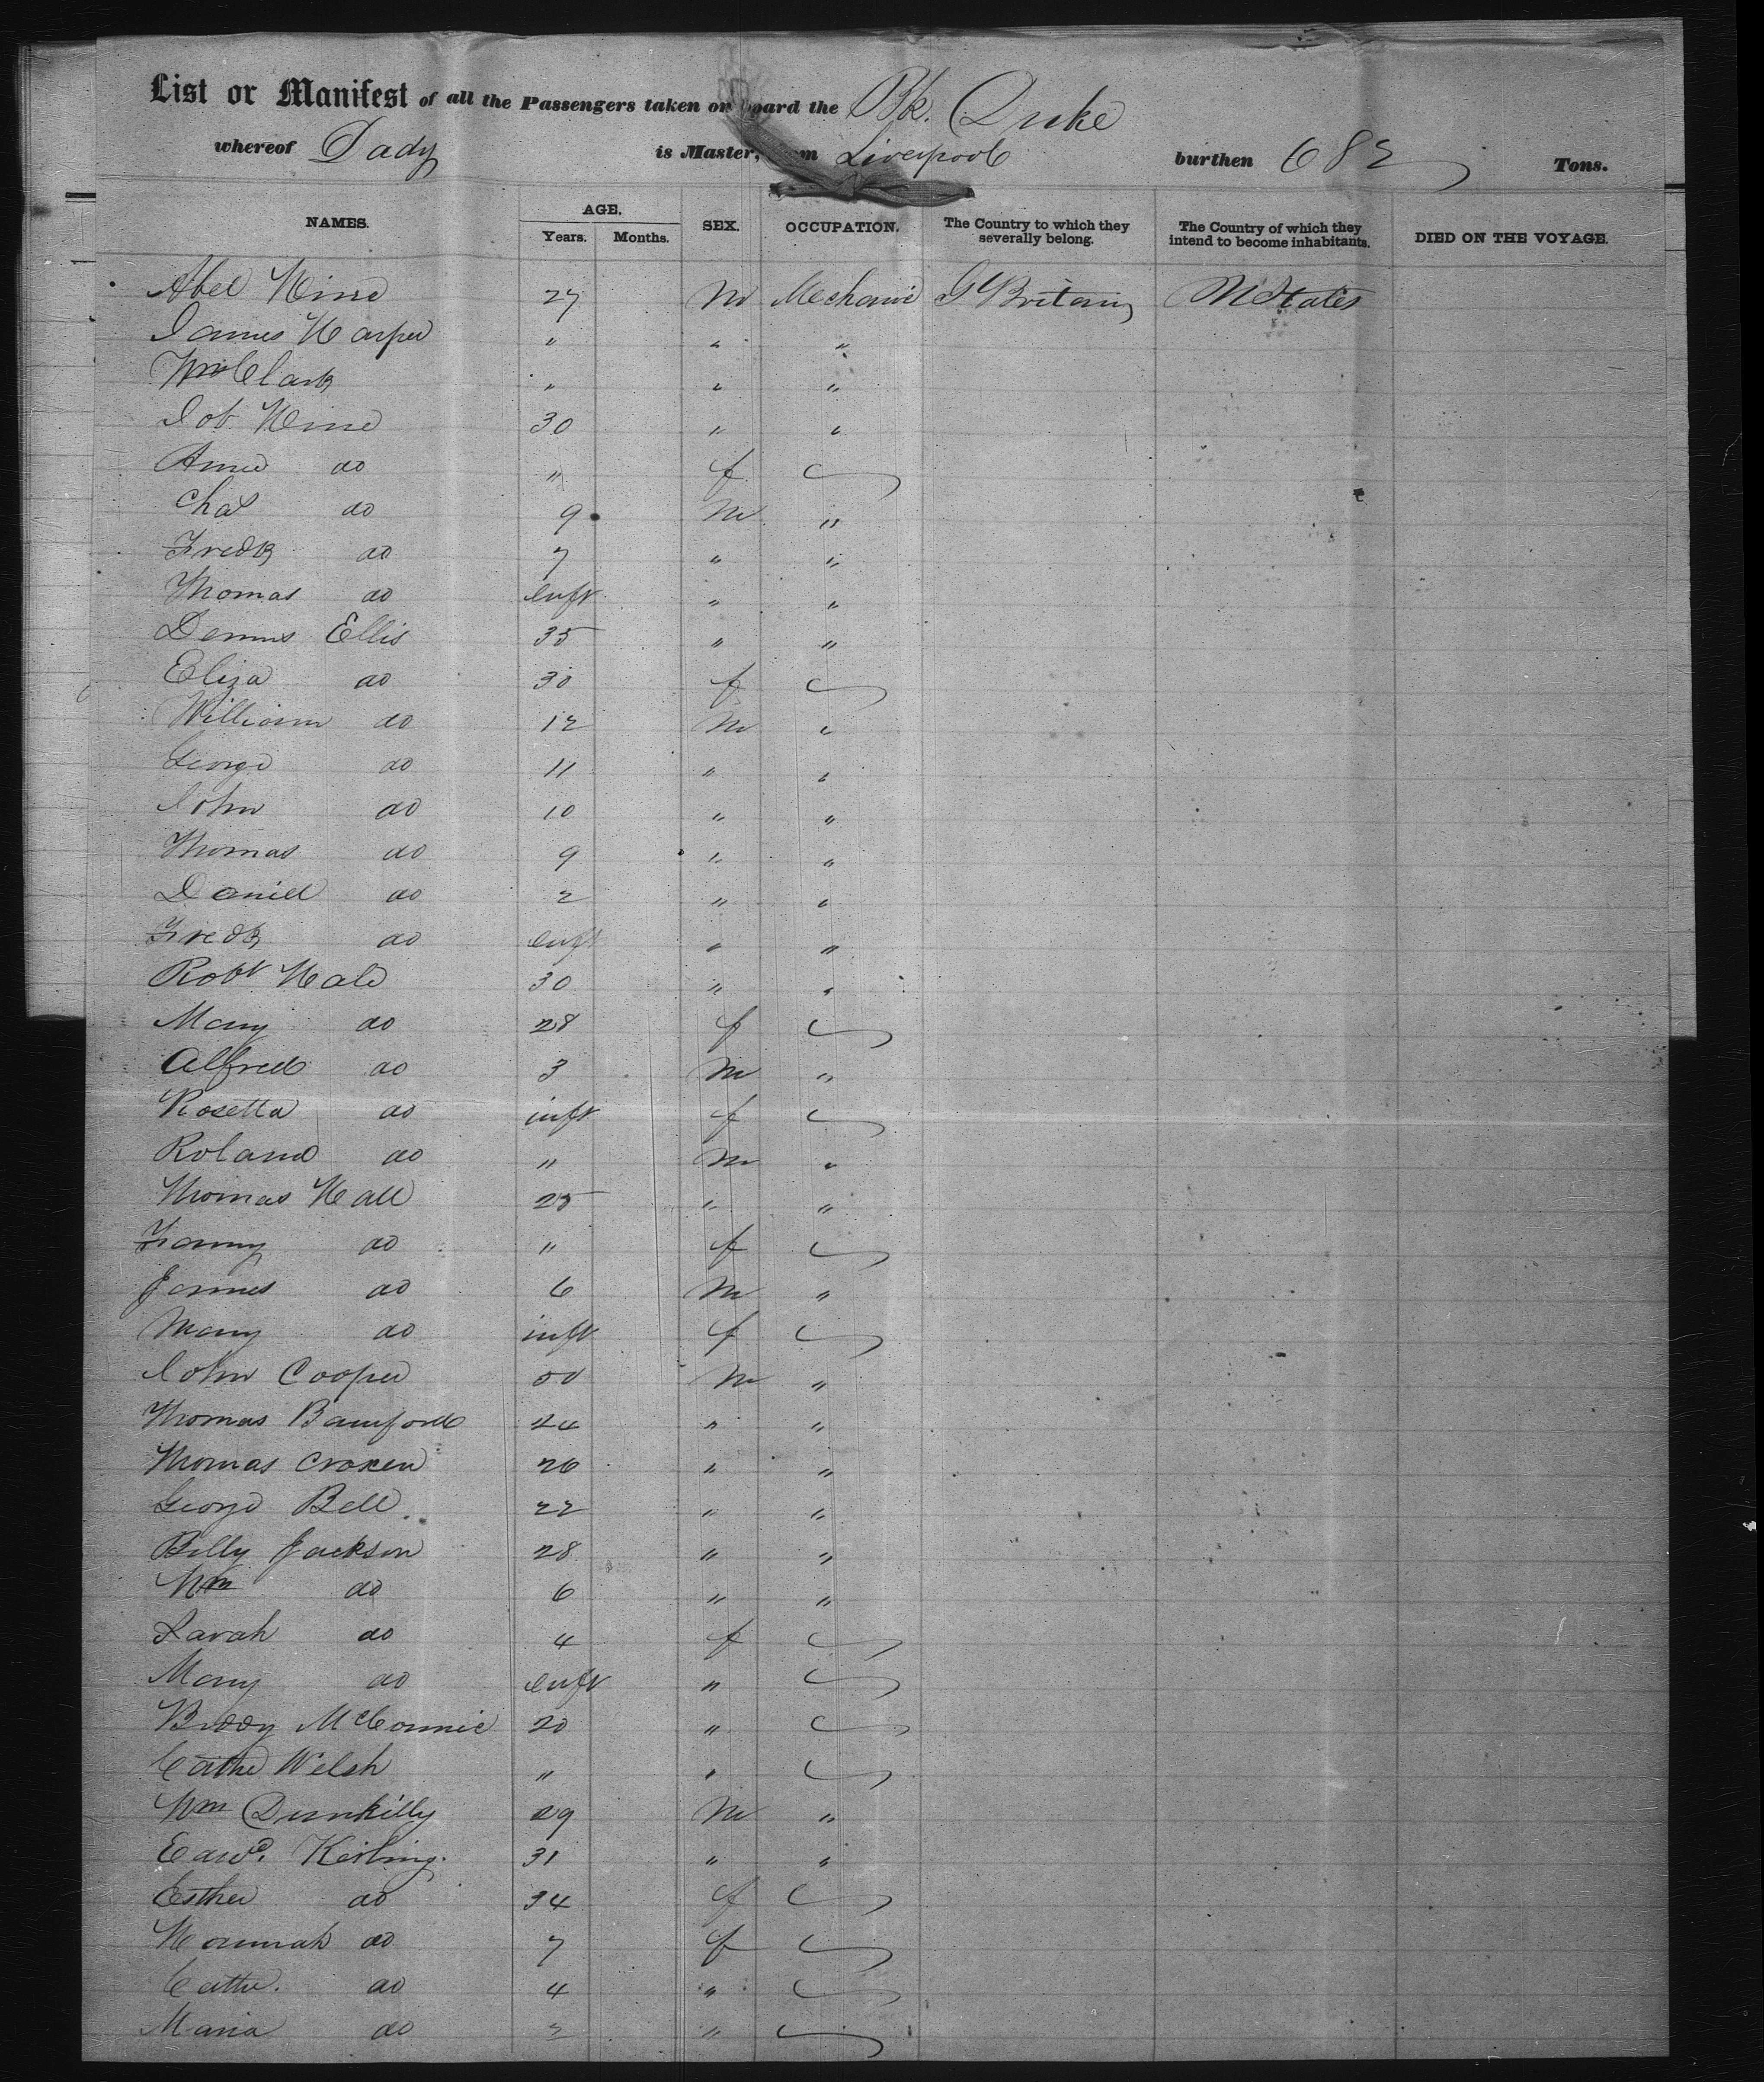 List or Manifest of all the Passengers taken on board the Bk. Duke
whereof Dady is Master, from Liverpool burthen 682 Tons.
NAMES. AGE. Years. Months. SEX. OCCUPATION. The Country to which they severally belong. The Country of which they intend to become inhabitants. DIED ON THE VOYAGE.
Abel Hine 27 M Mechanic Gt Britain U States
James Harper " " "
Wm Clark " " "
Job Hine 30 " "
Anne do " f
Chas do 9 M "
Fredk do 7 " "
Thomas do inft " "
Dennis Ellis 35 " "
Eliza do 30 f
William do 12 M "
George do 11 " "
John do 10 " "
Thomas do 9 " "
Daniel do 2 " "
Fredk do inft " "
Robt Hale 30 " "
Mary do 28 f
Alfred do 3 M "
Rosetta do inft f
Roland do " M "
Thomas Hall 25 " "
Fanny do " f
James do 6 M "
Mary do inft f
John Cooper M "
Thomas Bamford 24 " "
Thomas 26 " "
George Bell 22 " "
Billy Jackson 28 " "
Wm do 6 " "
Sarah do 4 f
Mary do inft "
Biddy 20 "
Cathe Welsh " "
Wm Dunkilly 29 M "
Edwd. Keiling 31 " "
Esther do 34 f
Hannah do 7 f
Cathe. do 4 "
Maria do 2 "